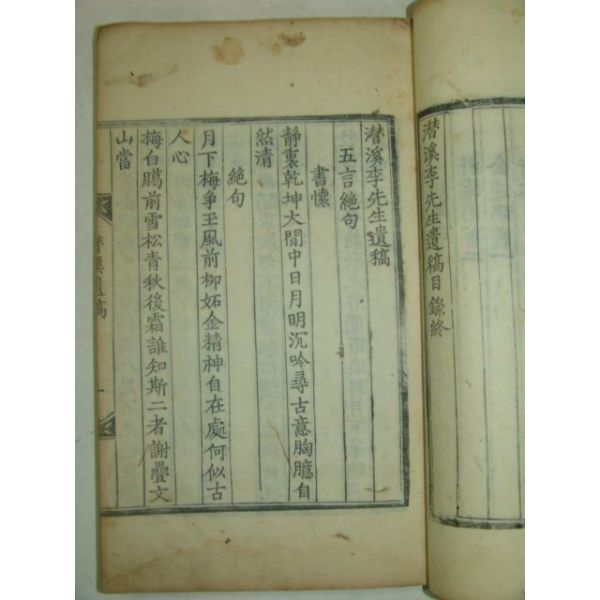 潜溪李先生遺稿目錄終
潜溪李先生遺稿
五言絶句
書懷
靜裏乾坤大閒中日月明沉吟尋古意胸臆自
然清
絶句
月下梅爭玉風前柳妬金精神自在處何似古
人心
梅白臈前雪松青秋後霜誰知斯二者謝疊文
山當
潜溪遺稿
一